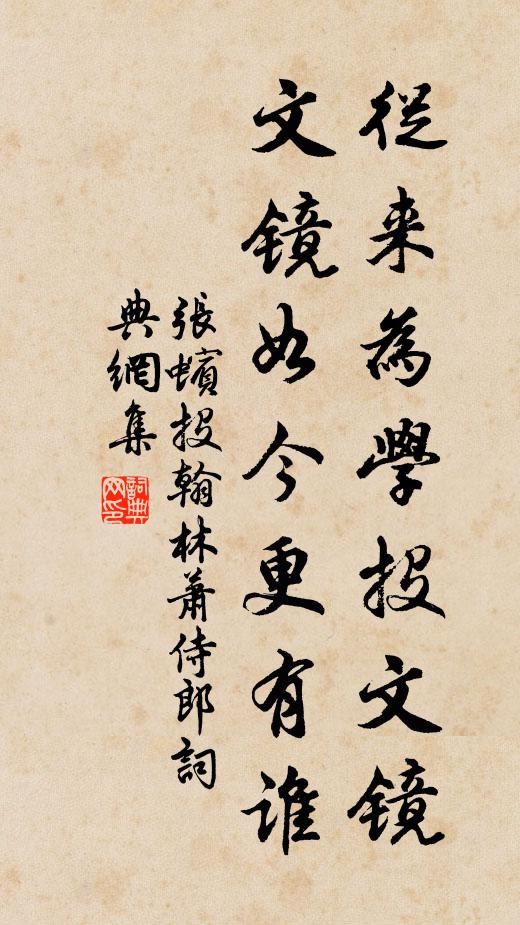 從来為學投文镜
文镜如今更有誰
張蠙投翰林蕭侍郎詞
典網集
詞典
网印